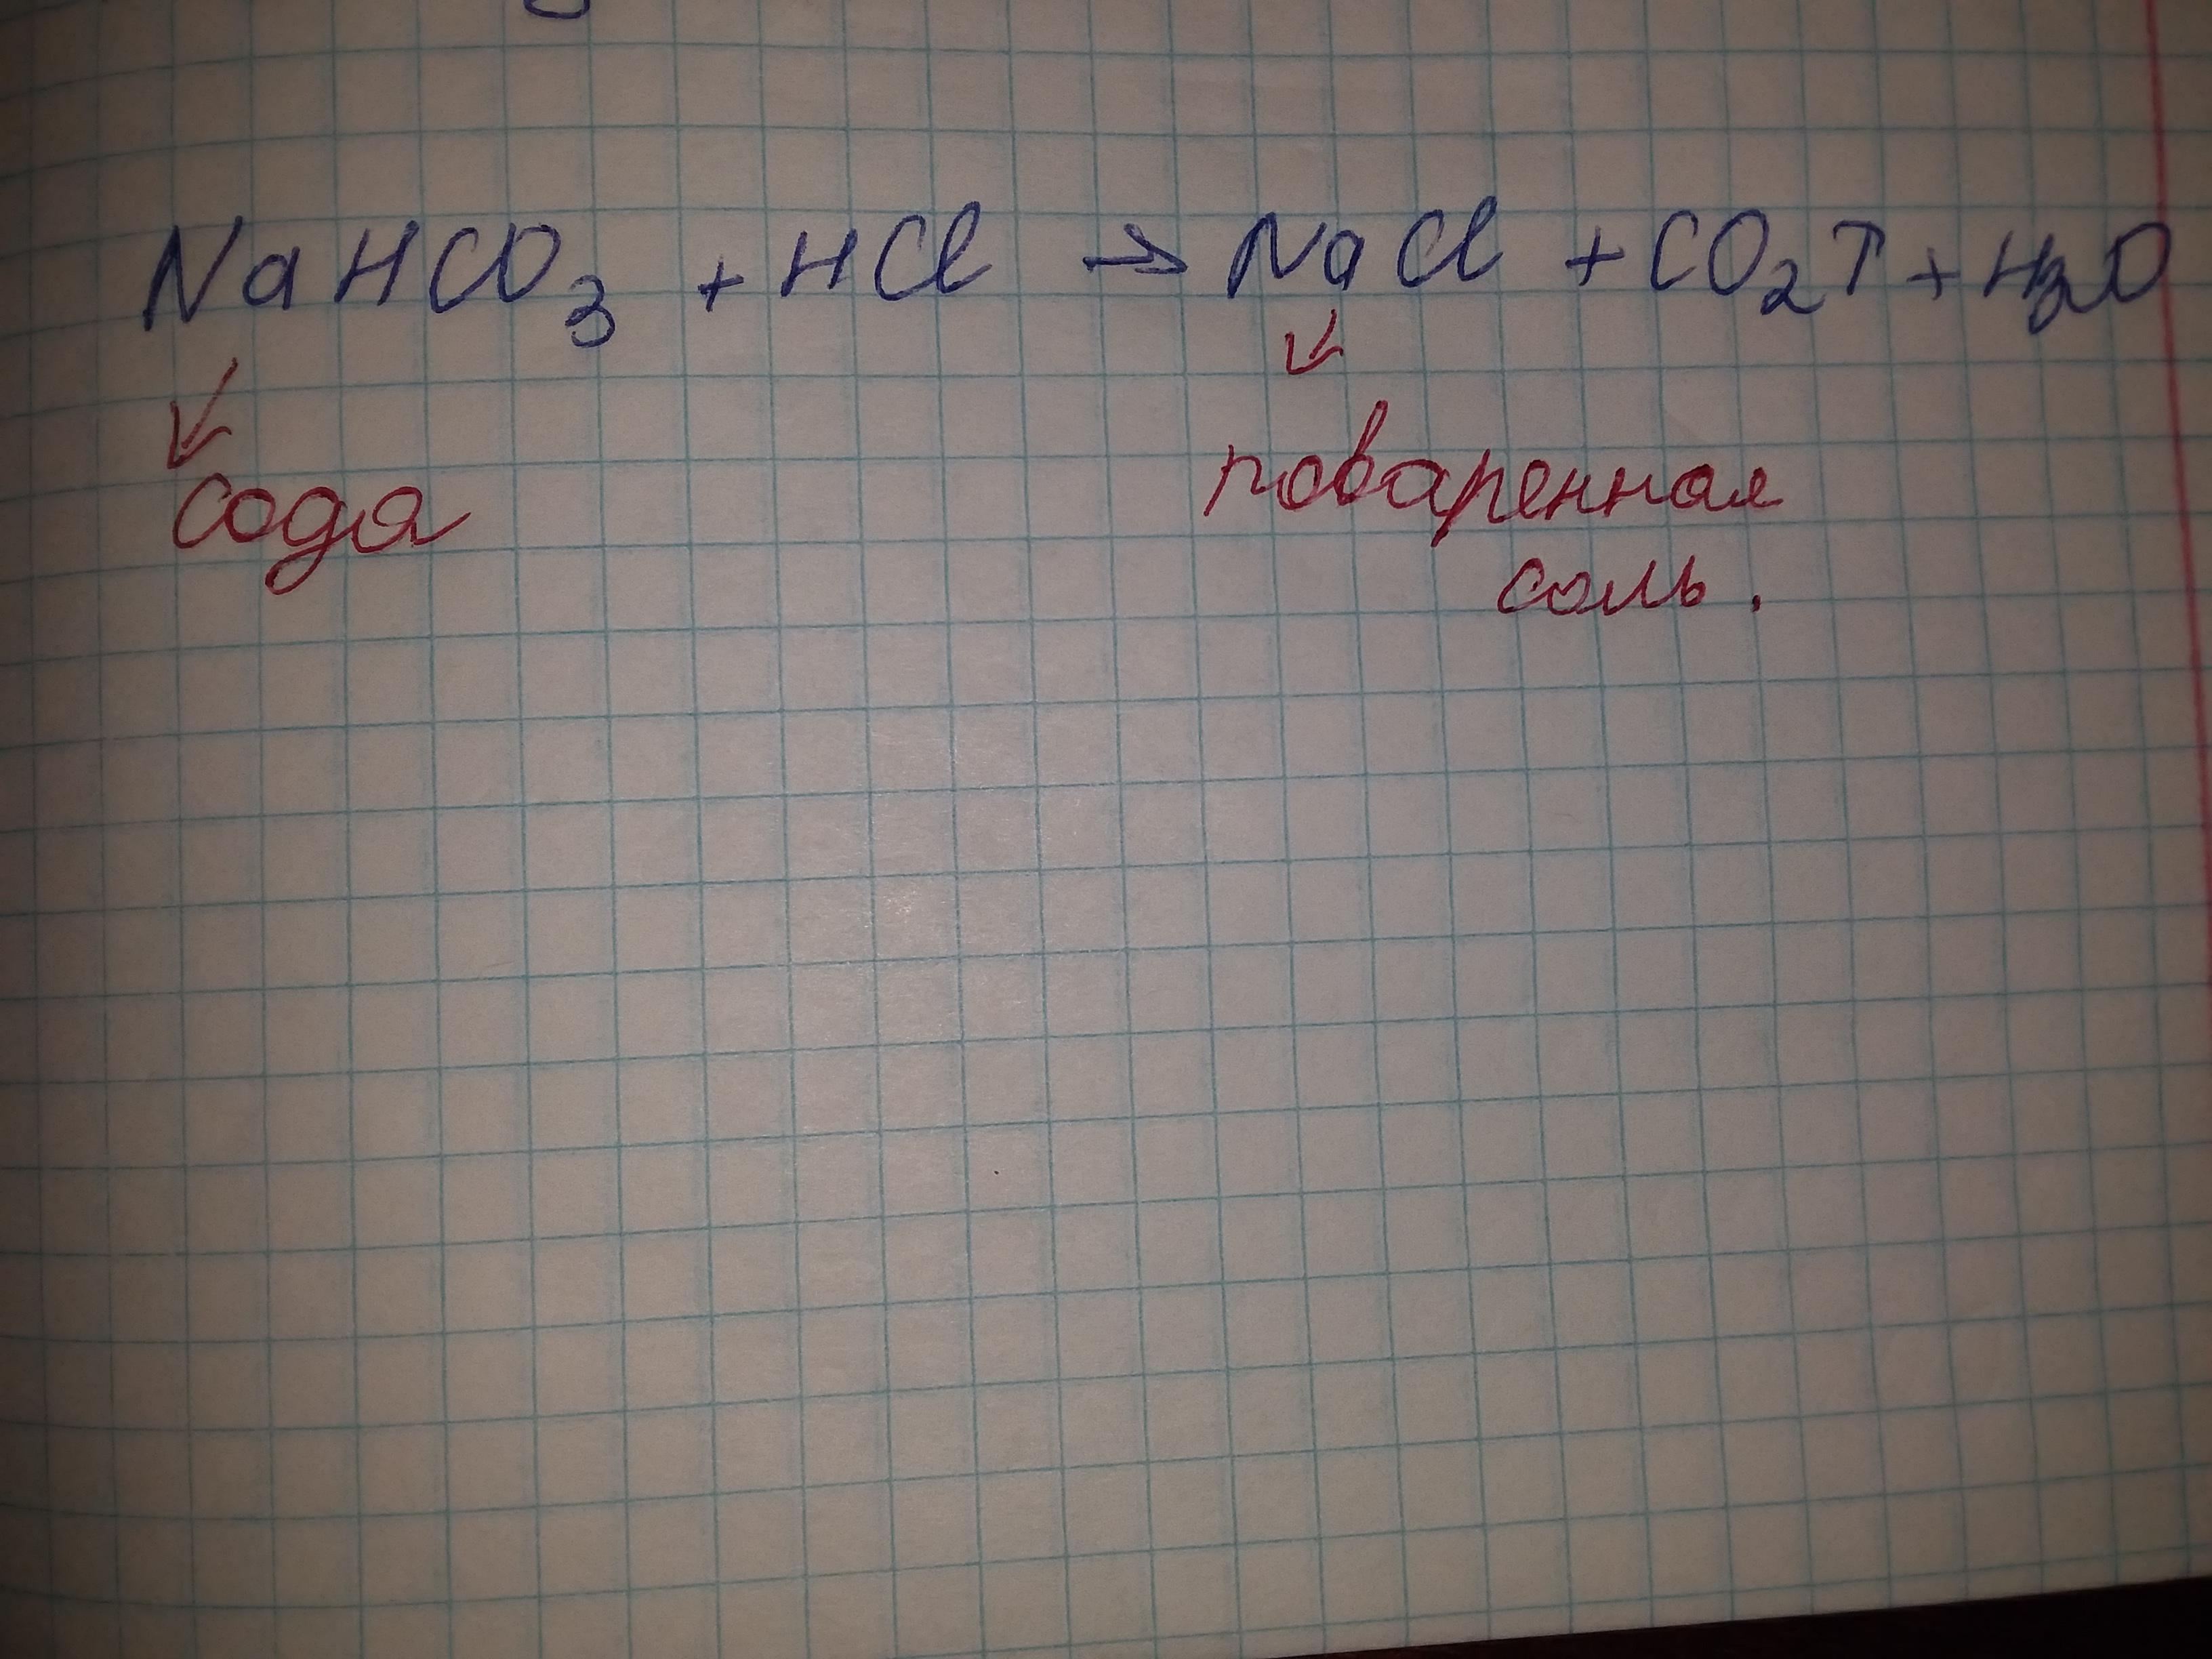 NaHCO₃ + HCl → NaCl + CO₂↑ + H₂O
сода
поваренная
соль.